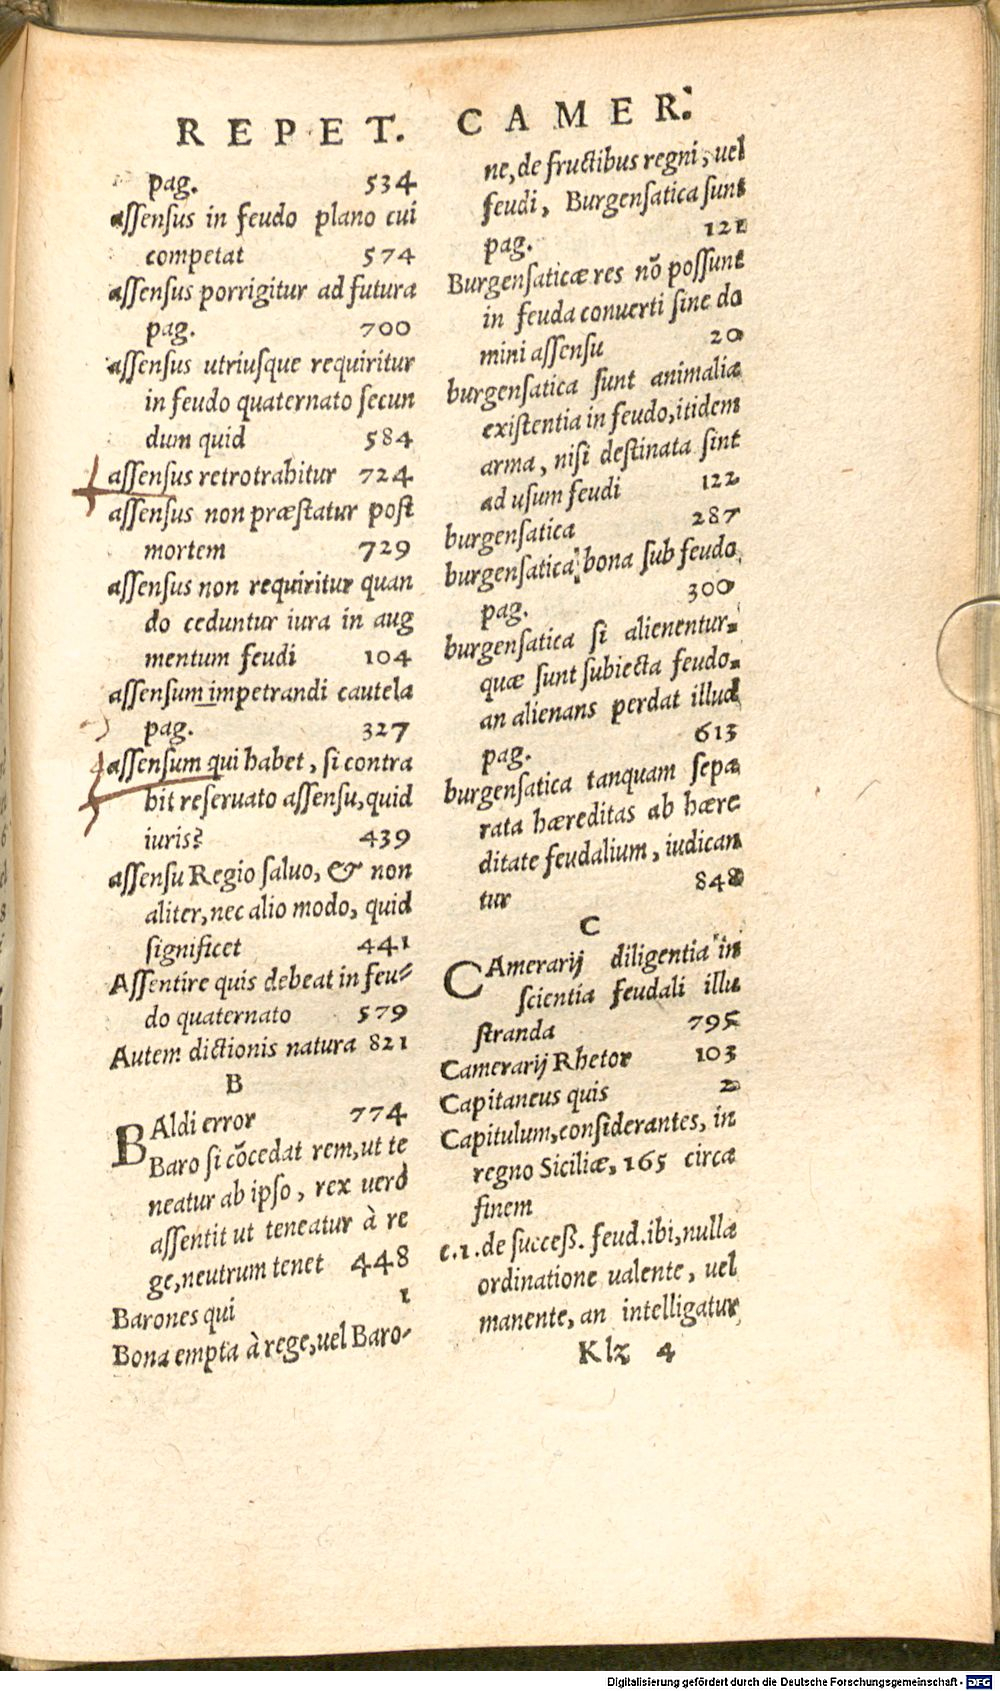 REPET. CAMER.
pag. 534
assensus in feudo plano cui
competat 574
assensus porrigitur ad futura
pag. 700
assensus utriusque requiritur
in feudo quaternato secun
dum quid 584
assensus retrotrahitur 724
assensus non præstatur post
mortem 729
assensus non requiritur quan
do ceduntur iura in aug
mentum feudi 104
assensum impetrandi cautela
pag. 327
assensum qui habet, si contra
hit reseruato assensu, quid
iuris? 439
assensu Regio saluo, & non
aliter, nec alio modo, quid
significet 441
Assentire quis debeat in feu-
do quaternato 579
Autem dictionis natura 821
B
BAldi error 774
Baro si cõcedat rem, ut te
neatur ab ipso, rex uerò
assentit ut teneatur à re
ge, neutrum tenet 448
Barones qui 1
Bona empta à rege, uel Baro-
ne, de fructibus regni, uel
feudi, Burgensatica sunt
pag. 121
Burgensaticæ res nõ possunt
in feuda conuerti sine do
mini assensu 20
burgensatica sunt animalia
existentia in feudo, itidem
arma, nisi destinata sint
ad usum feudi 122
burgensatica 287
burgensatica bona sub feudo
pag. 300
burgensatica si alienentur,
quæ sunt subiecta feudo,
an alienans perdat illud
pag. 613
burgensatica tanquam sepa
rata hæreditas ab hære
ditate feudalium, iudican
tur 848
C
CAmerarij diligentia in
scientia feudali illu
stranda 795
Camerarij Rhetor 103
Capitaneus quis 2
Capitulum, considerantes, in
regno Siciliæ, 165 circa
finem
c. 1. de success. feud. ibi, nulla
ordinatione ualente, uel
manente, an intelligatur
Klz 4
Digitalisierung gefördert durch die Deutsche Forschungsgemeinschaft - DFG